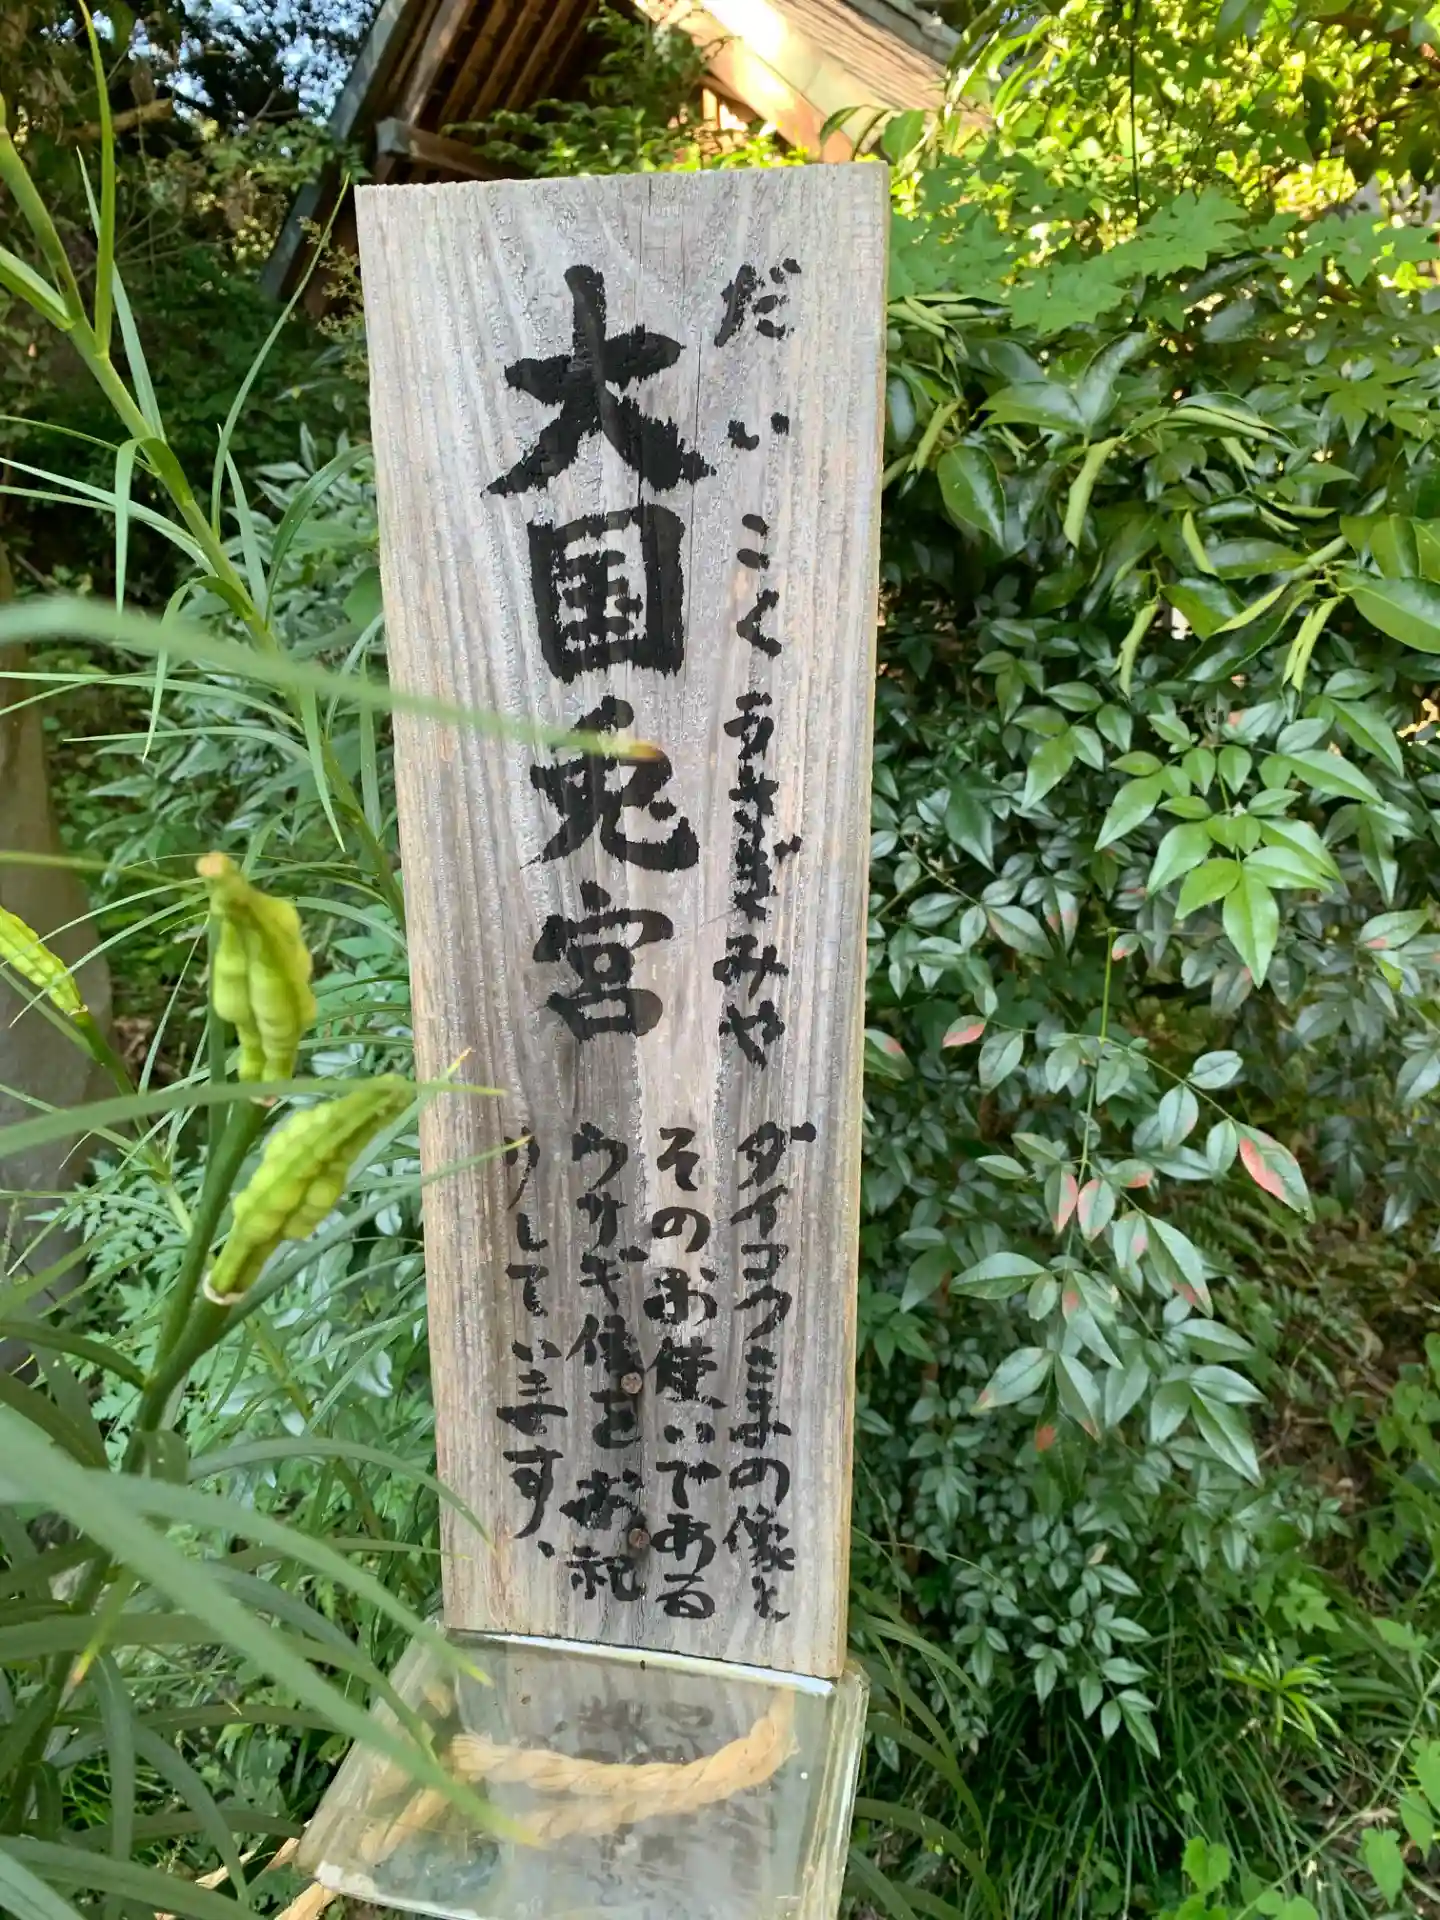 だいこくうさぎみや
大国兎宮
ダイコクさまの像と
そのお使いである
ウサギ像をお祀
りしています、